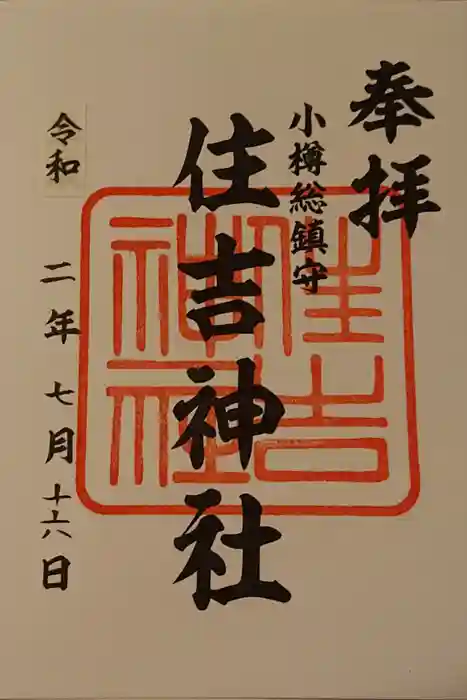 奉拝
小樽総鎮守
住吉神社
住吉
神社
令和二年七月十六日